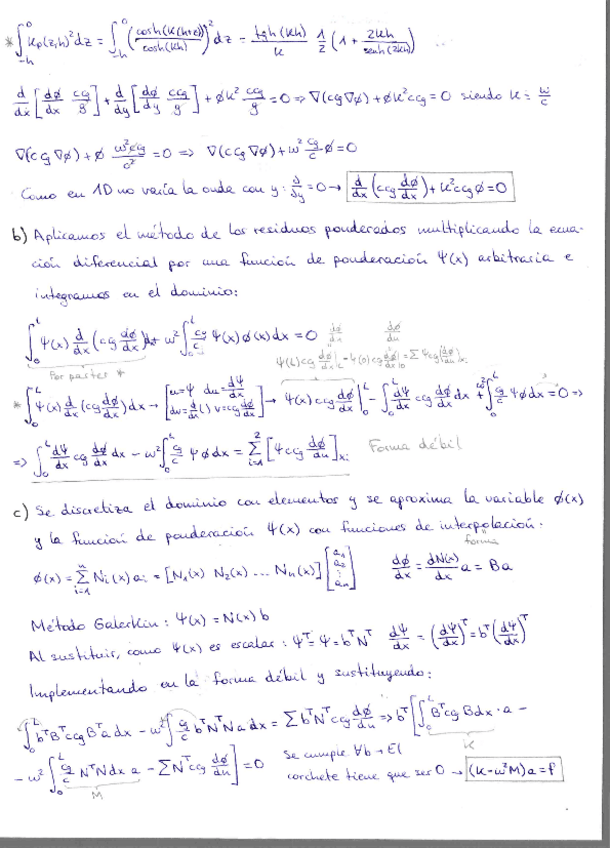 * ∫_{-h}^{0} Kp(z,h)² dz = ∫_{-h}^{0} (cosh(K(h+z))/cosh(Kh))² dz = tgh(Kh)/K 1/2 (1 + 2Kh/senh(2Kh))
d/dx [dϕ/dx ccg/g] + d/dy [dϕ/dy ccg/g] + ϕK² ccg/g = 0 ⇒ ∇(ccg∇ϕ) + ϕK²ccg = 0 siendo K = w/c
∇(ccg∇ϕ) + ϕ w²ccg/c² = 0 ⇒ ∇(ccg∇ϕ) + w² cg/c ϕ = 0
Como en 1D no varía la onda con y: ∂/∂y = 0 → d/dx (ccg dϕ/dx) + K²ccgϕ = 0
b) Aplicamos el método de los residuos ponderados multiplicando la ecua-
ción diferencial por una función de ponderación Ψ(x) arbitraria e
integramos en el dominio:
∫_0^L Ψ(x) d/dx (ccg dϕ/dx) dx + w² ∫_0^L cg/c Ψ(x) ϕ(x) dx = 0
Por partes *
* ∫_0^L Ψ(x) d/dx (ccg dϕ/dx) dx → [u=Ψ du=dΨ/dx dv=d/dx( ) v=ccg dϕ/dx] → Ψ(x) ccg dϕ/dx |_0^L - ∫_0^L dΨ/dx ccg dϕ/dx dx + w² ∫_0^L cg/c Ψϕ dx = 0 ⇒
⇒ ∫_0^L dΨ/dx ccg dϕ/dx dx - w² ∫_0^L cg/c Ψϕ dx = Σ_{i=1}^{2} [Ψ ccg dϕ/dn]_{xi} Forma débil
c) Se discretiza el dominio con elementos y se aproxima la variable ϕ(x)
y la función de ponderación Ψ(x) con funciones de interpolación.
forma
ϕ(x) = Σ_{i=1}^{n} Ni(x) ai = [N1(x) N2(x) ... Nn(x)] [a1 a2 ⋮ an] dϕ/dx = dN(x)/dx a = Ba
Método Galerkin: Ψ(x) = N(x) b
Al sustituir, como Ψ(x) es escalar: Ψᵀ = Ψ = bᵀNᵀ dΨ/dx = (dΨ/dx)ᵀ = bᵀ(dΨ/dx)ᵀ
Implementando en la forma débil y sustituyendo:
∫_0^L bᵀBᵀccgBᵀa dx - w² ∫_0^L cg/c bᵀNᵀNa dx = Σ bᵀNᵀccg dϕ/dn ⇒ bᵀ[∫_0^L Bᵀccg B dx · a -
K
- w² ∫_0^L cg/c NᵀN dx a - Σ Nᵀccg dϕ/dn] = 0 Se cumple ∀b → El
M
corchete tiene que ser 0 → (K-w²M)a = f